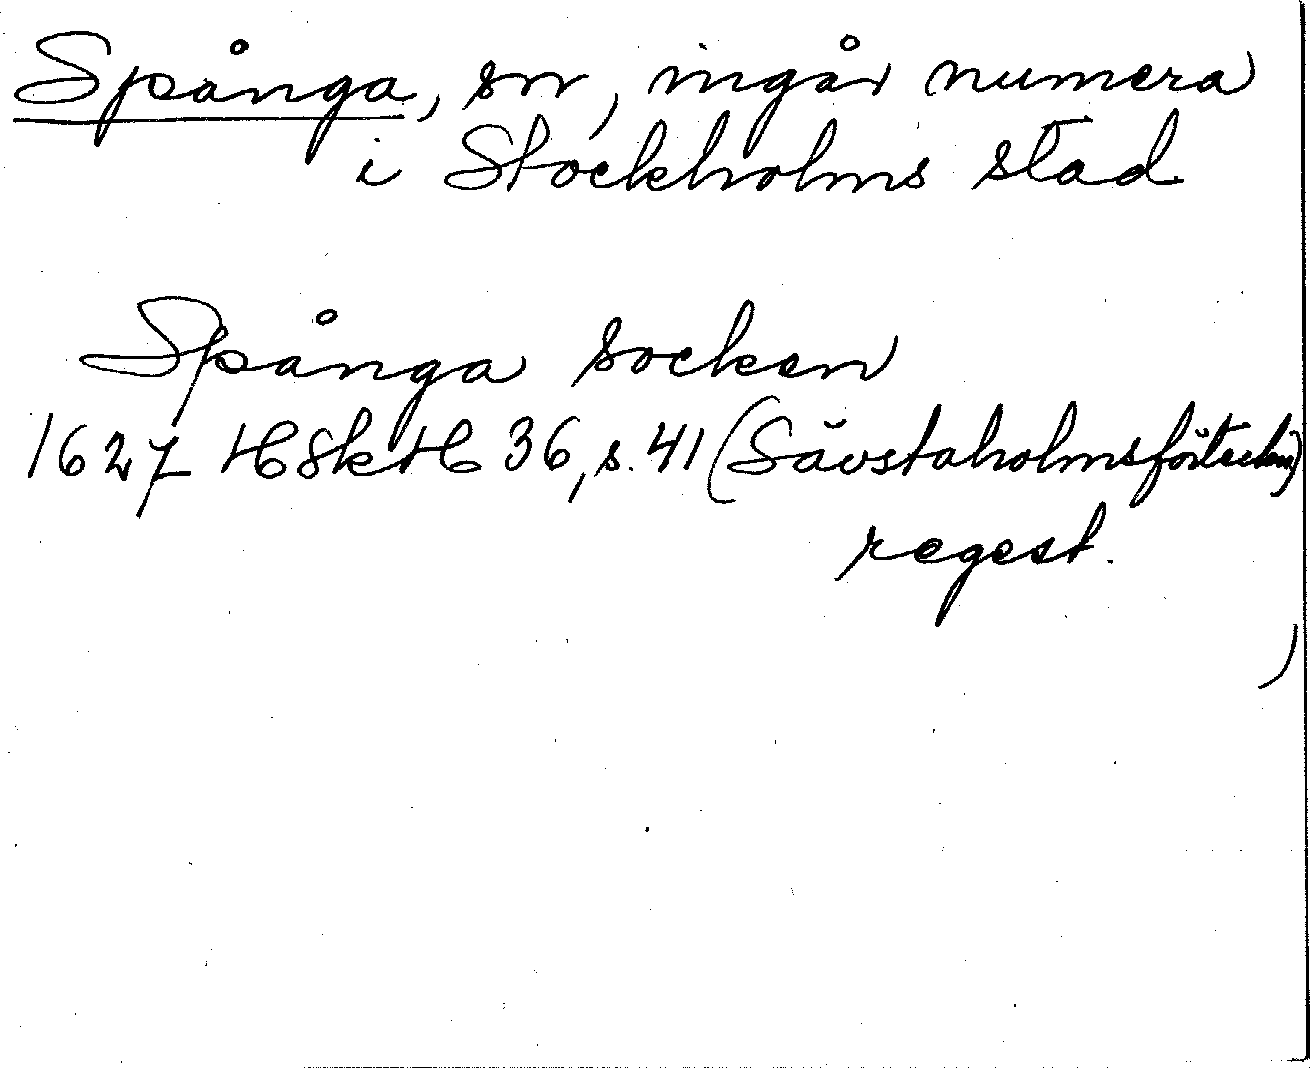 Spånga, sn, ingår numera
i Stockholms stad
Spånga socken
1627 HSkH 36, s. 41 (Sävstaholmsförteckn)
regest.